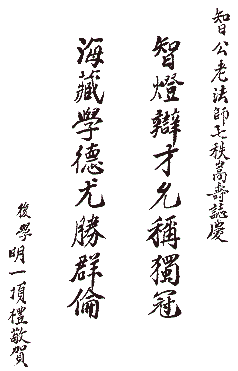 智公老法師七秩嵩壽誌慶
智燈辯才允稱獨冠
海藏學德尤勝群倫
後學明一頂禮敬賀